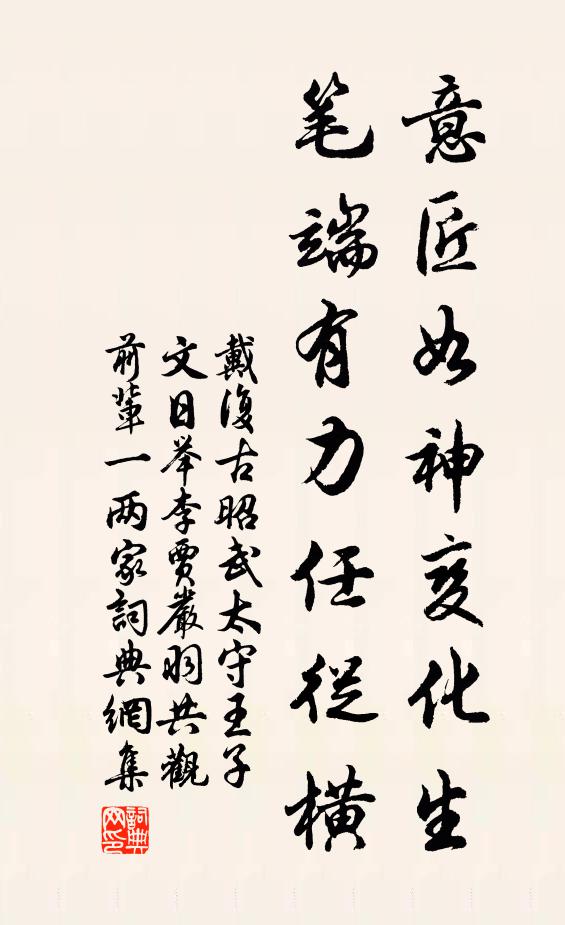 意匠如神变化生
笔端有力任從横
戴復古昭武太守王子
文日举李賈嚴羽共觀
前輩一两家詞典網集
詞典網印